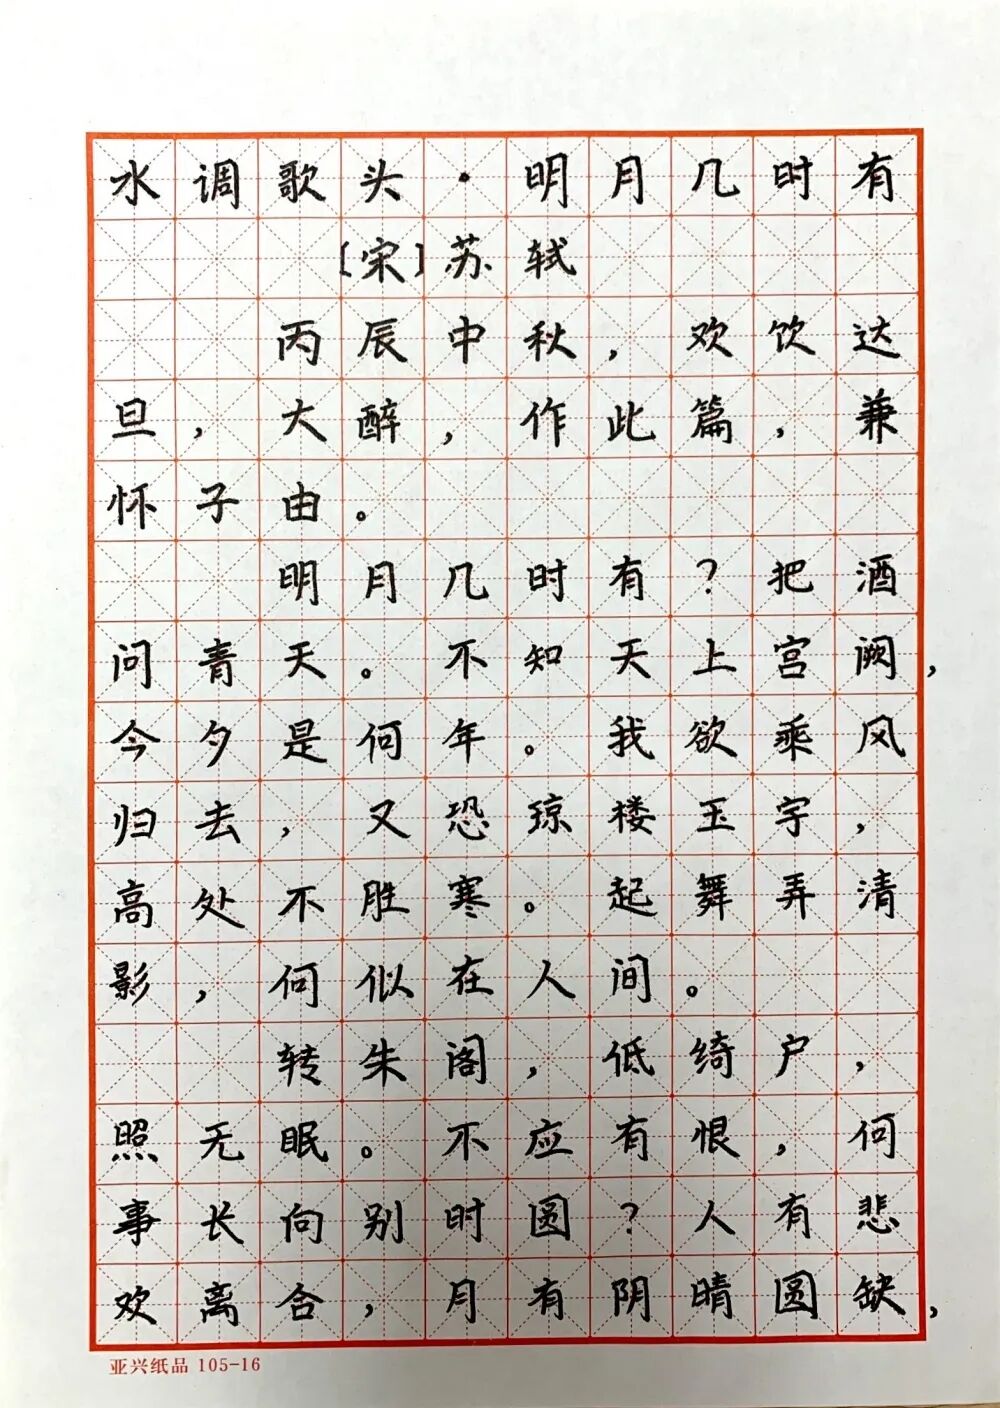 水调歌头·明月几时有
[宋]苏轼
丙辰中秋，欢饮达
旦，大醉，作此篇，兼
怀子由。
明月几时有？把酒
问青天。不知天上宫阙，
今夕是何年。我欲乘风
归去，又恐琼楼玉宇，
高处不胜寒。起舞弄清
影，何似在人间。
转朱阁，低绮户，
照无眠。不应有恨，何
事长向别时圆？人有悲
欢离合，月有阴晴圆缺，
亚兴纸品 105-16